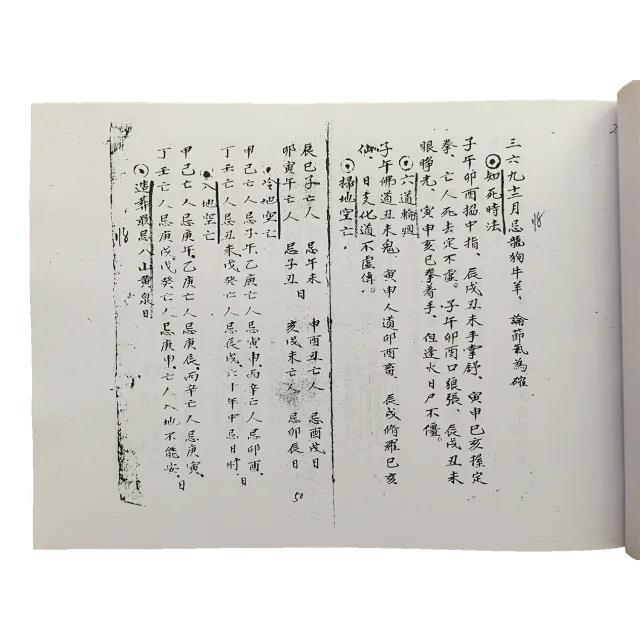 三六九十二月忌龍狗牛羊，論節氣為確
知死時法
子午卯酉掐中指，辰戌丑未手掌舒，寅申巳亥握定
拳，亡人死去定不虛。子午卯酉口狼張，辰戌丑未
眼睜光，寅申亥巳拳着手，但逢火日尸不僵。
六道輪迴
子午佛道丑未鬼，寅申人道卯酉畜，辰戌脩羅巳亥
仙，日支化道不虛傳。
掃地空亡
辰巳子亡人 忌午未 申酉丑亡人 忌酉戌日
卯寅午亡人 忌子丑日 亥戌未亡人 忌卯辰日
冷地空亡
甲己亡人忌子午，乙庚亡人忌寅申，丙辛亡人忌卯酉，
丁壬亡人忌丑未，戊癸亡人忌辰戌，六十年中忌日時，日
入地空亡
甲己亡人忌庚午，乙庚亡人忌庚辰，丙辛亡人忌庚寅，
丁壬亡人忌庚戌，戊癸亡人忌庚申，亡人入地不能安，日
造葬最忌八山黄泉日
50